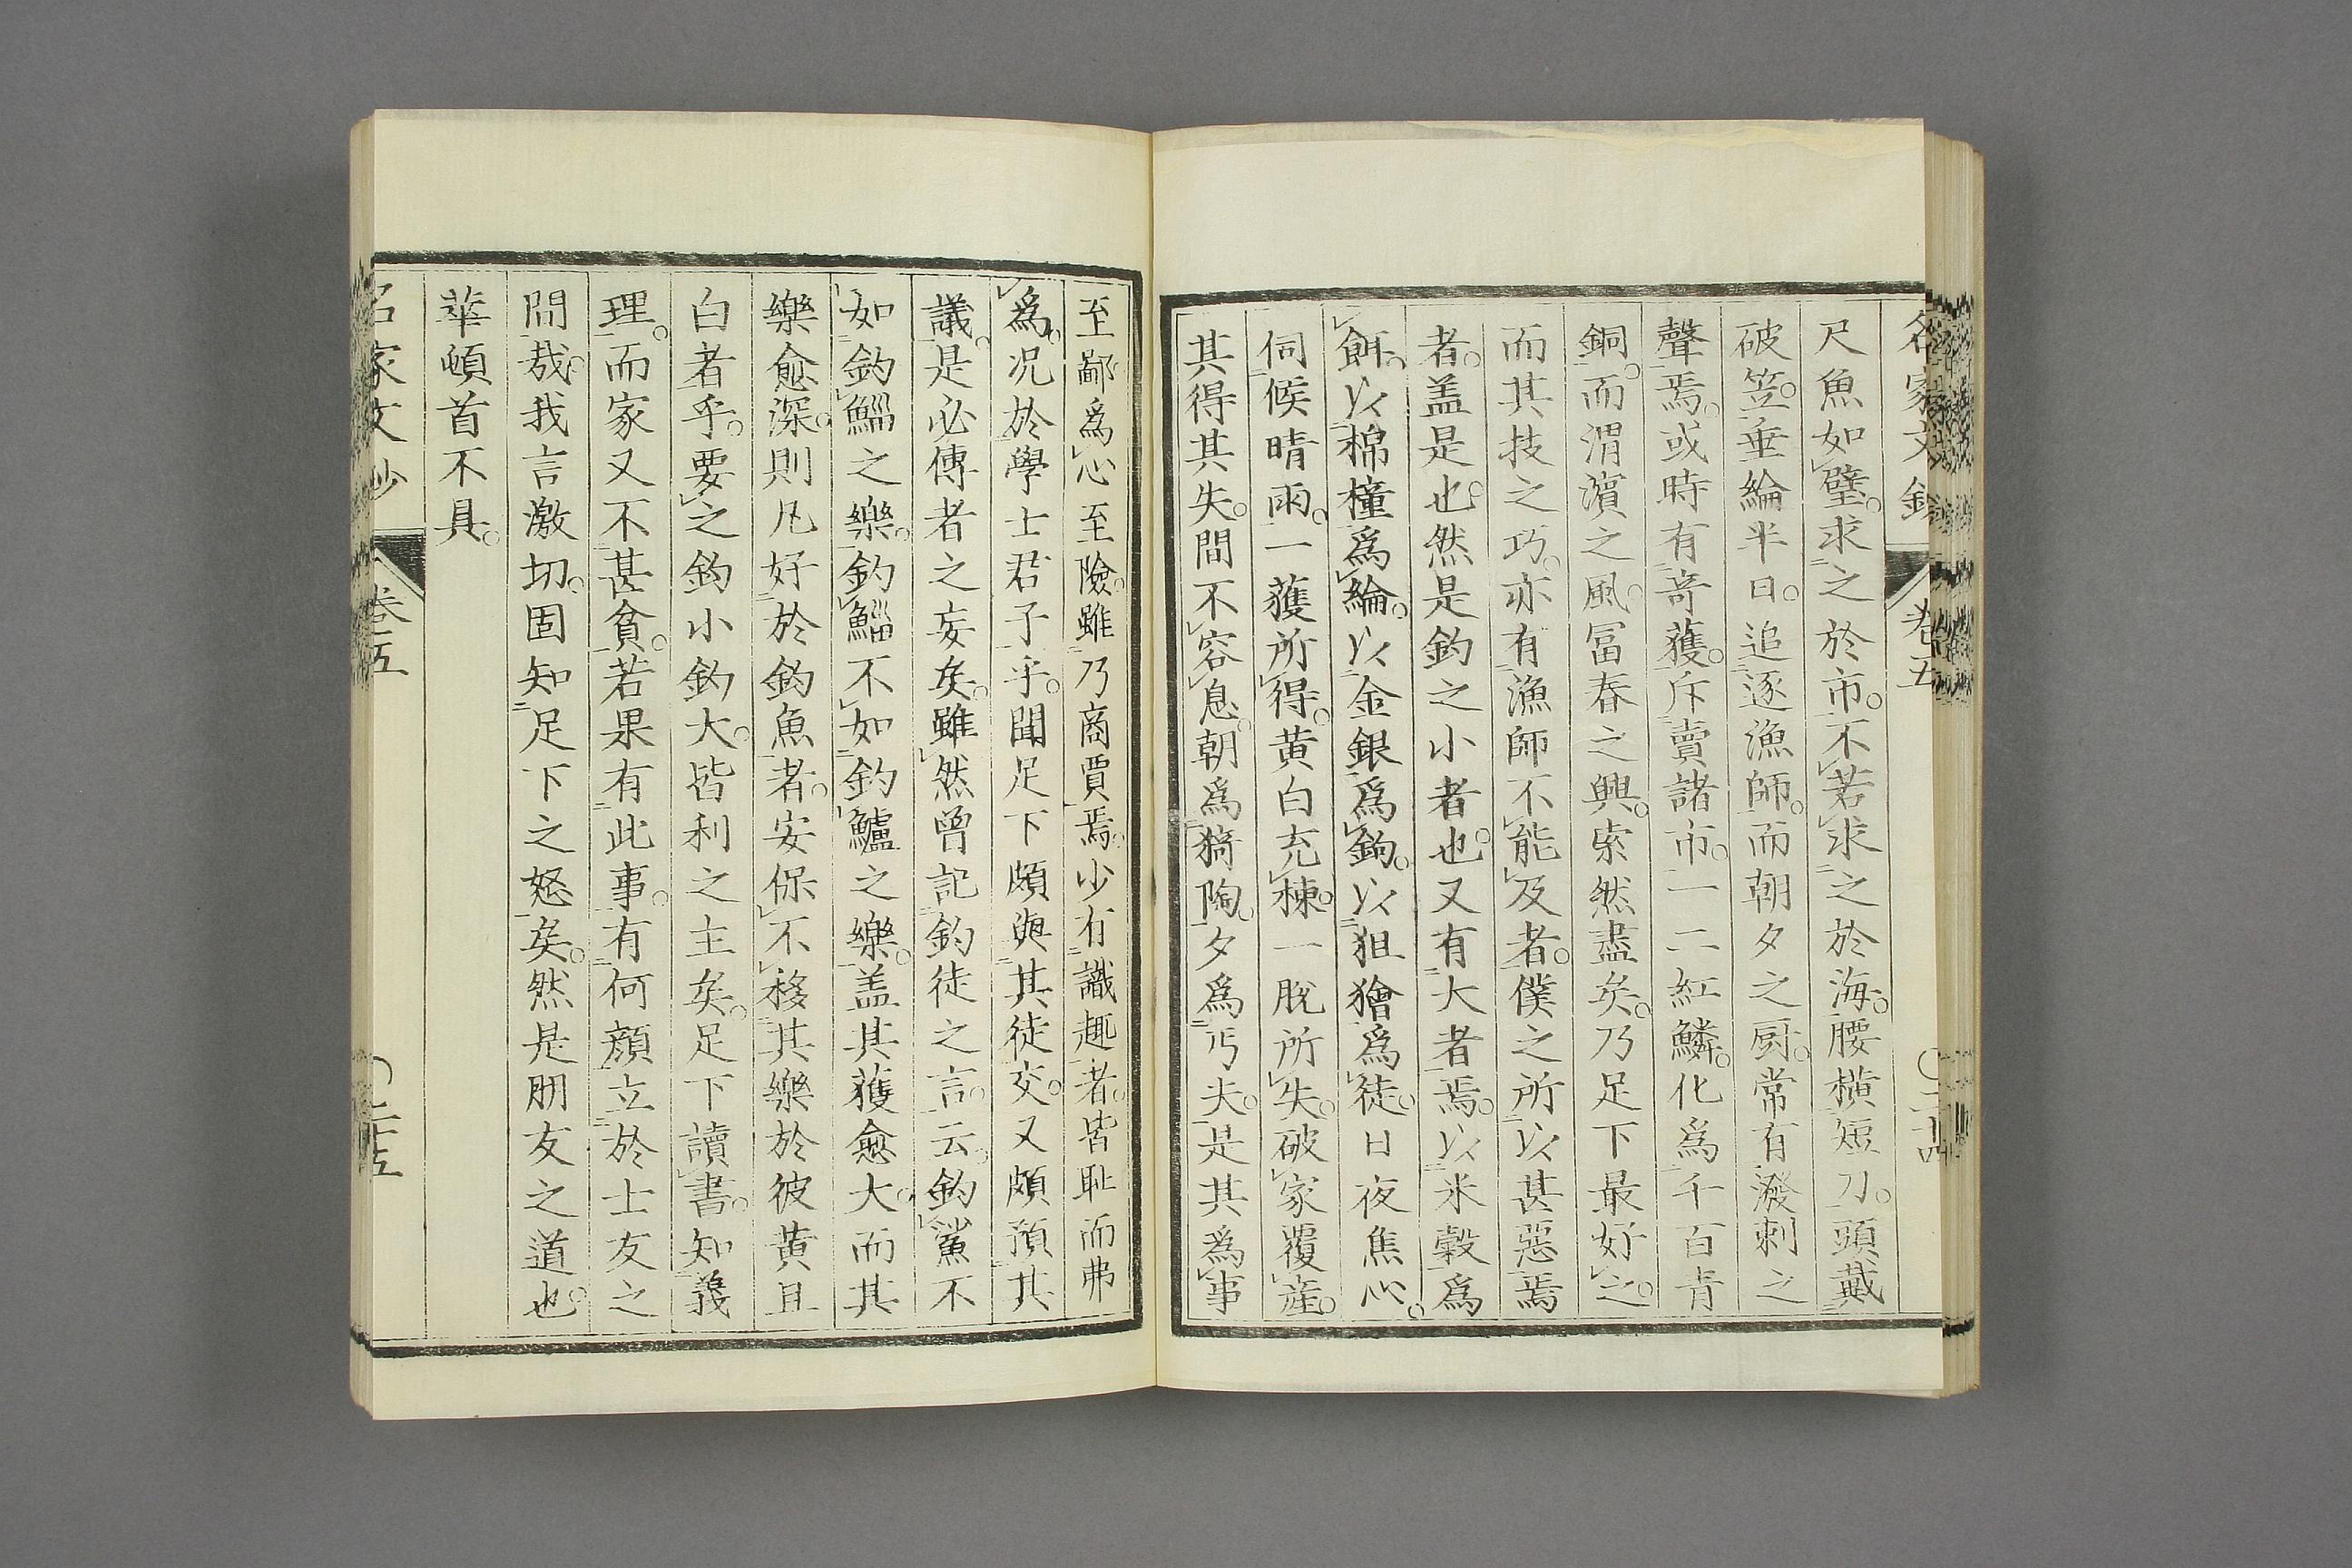 名家文鈔 卷五 ○二十四
尺魚如璧。求之於市。不若求之於海。腰橫短刀。頭戴
破笠。垂綸半日。追逐漁師。而朝夕之厨。常有潑剌之
聲焉。或時有竒獲。斥賣諸市。一二紅鱗。化爲千百青
銅。而渭濵之風。冨春之興。索然盡矣。乃足下最好之。
而其技之巧。亦有漁師不能及者。僕之所以甚惡焉
者。盖是也。然是釣之小者也。又有大者焉。以米穀爲
餌。以棉橦爲綸。以金銀爲鉤。以狙獪爲徒。日夜焦心。
伺候晴雨。一獲所得。黄白充棟。一脫所失。破家覆産。
其得其失。間不容息。朝爲猗陶。夕爲丐夫。是其爲事
至鄙。爲心至險。雖乃商賈焉。少有識趣者。皆耻而弗
爲。况於學士君子乎。聞足下頗與其徒交。又頗預其
議。是必傳者之妄矣。雖然曾記釣徒之言。云。釣鯊不
如釣鯔之樂。釣鯔不如釣鱸之樂。盖其獲愈大。而其
樂愈深。則凡好於釣魚者。安保不移其樂於彼黄且
白者乎。要之釣小釣大。皆利之主矣。足下讀書。知義
理。而家又不甚貧。若果有此事。有何顏立於士友之
間哉。我言激切。固知足下之怒矣。然是朋友之道也。
華頓首不具。
名家文鈔 卷五 ○二十五